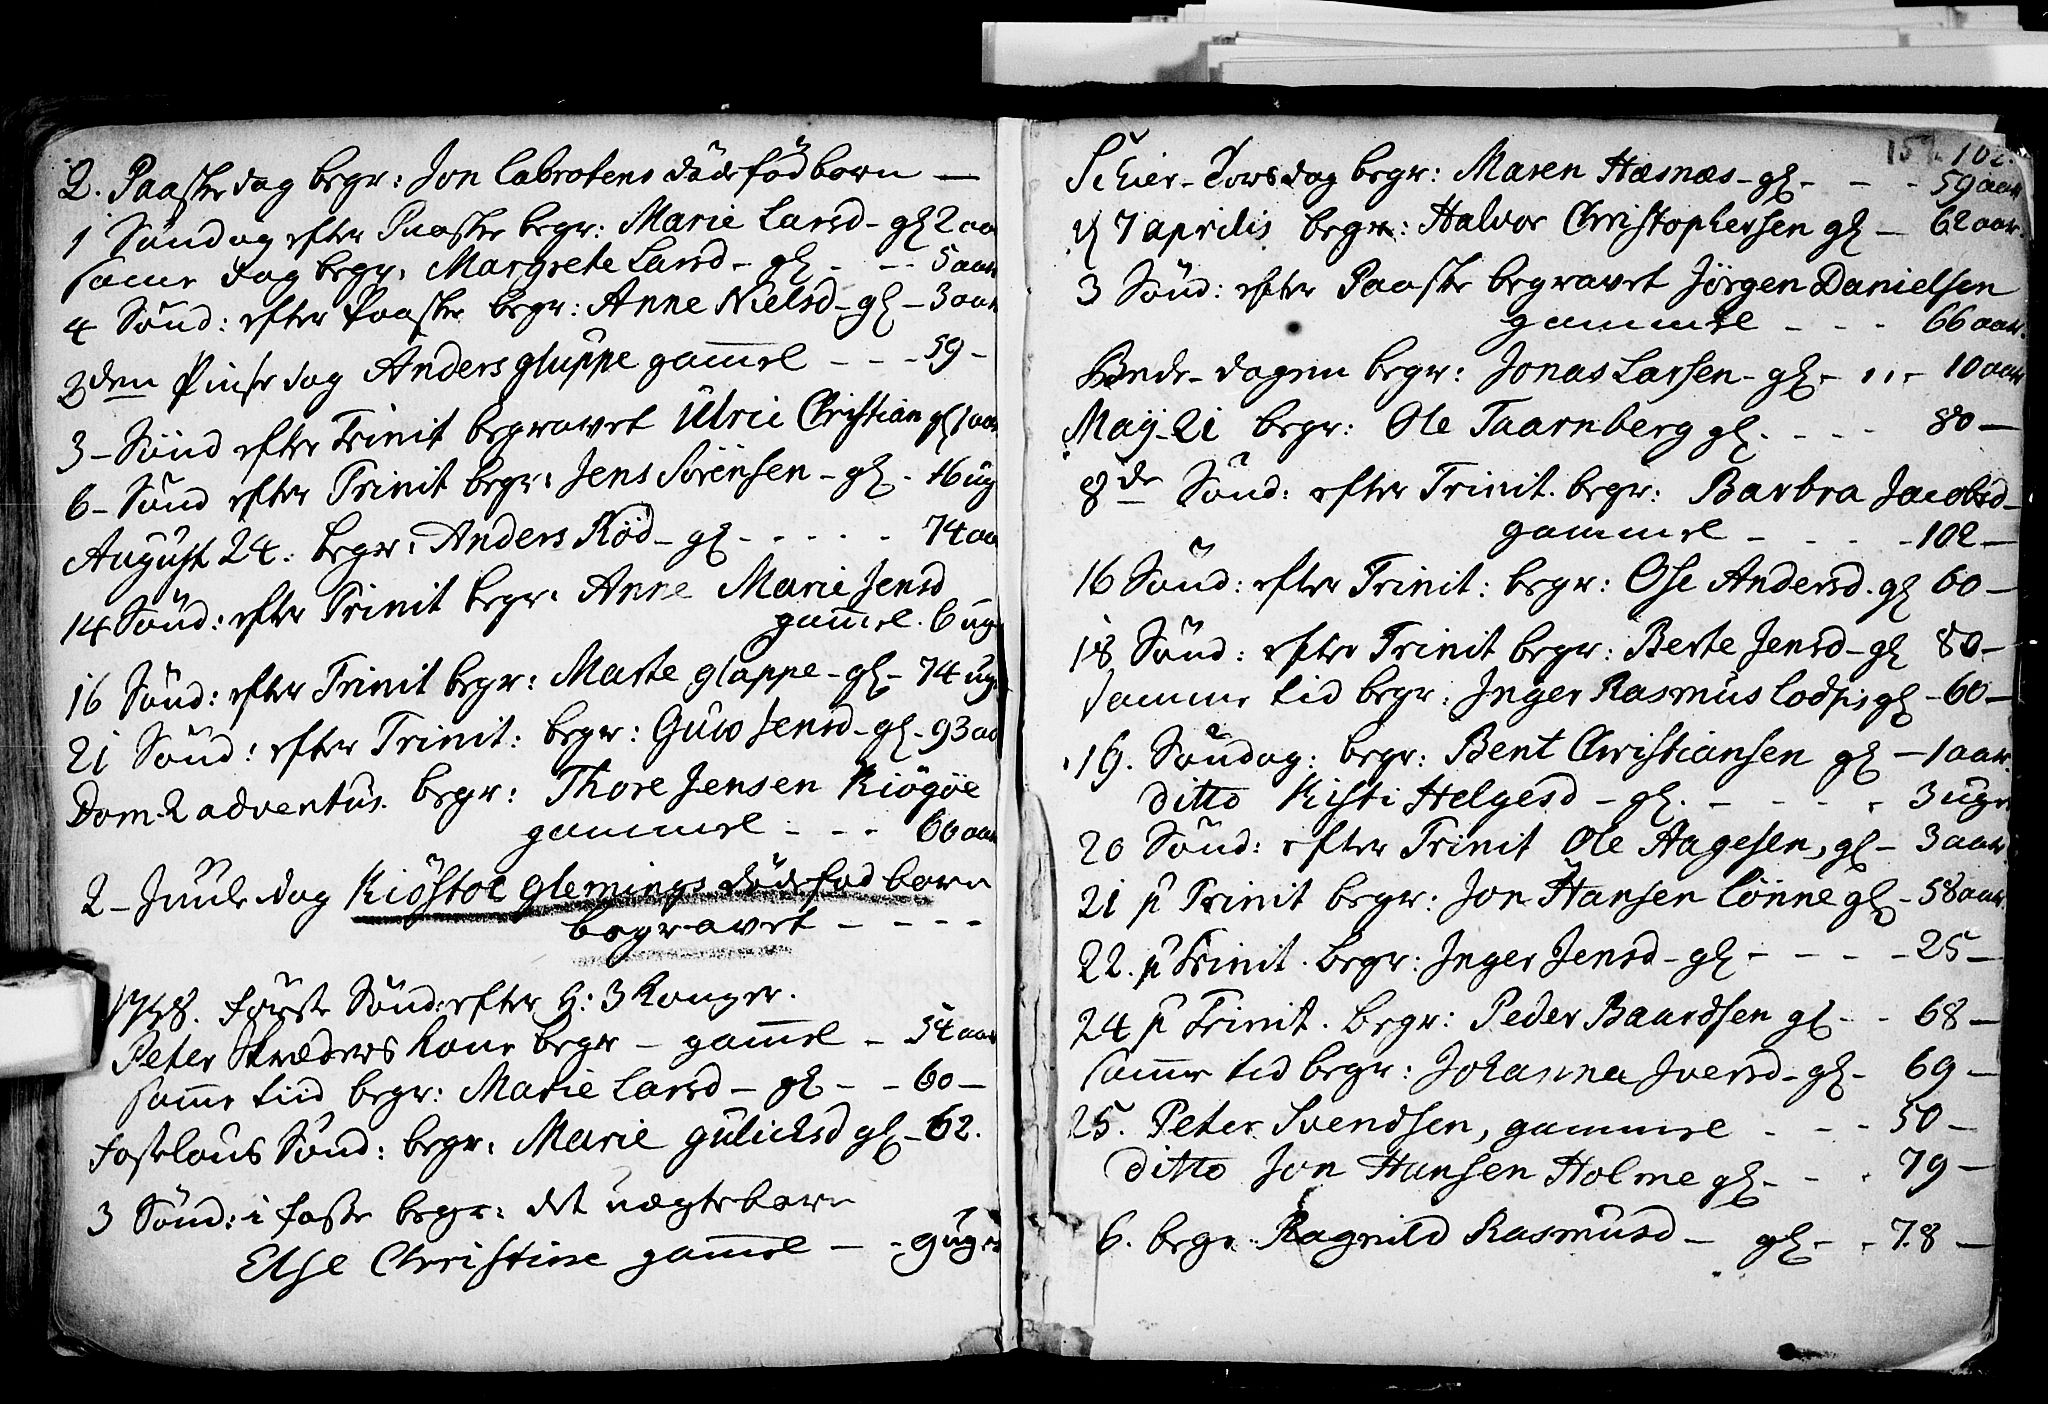 2. Paaskedag begr: Jon Labrotens dødefød barn —
1 Søndag efter Paaske begr: Marie Larsd - gl 2 aa
samme dag begr. Margrete Larsd - gl - - - 5 aar
4 Sønd: efter Paaske begr: Anne Nielsd - gl - 3 aar
2den Pinse dag Anders gluppe gam̄el - - - 59 -
3 - Sønd efter Trinit begravet Ulric Christian gl 1 aar
6 - Sønd efter Trinit begr: Jens Sörensen - gl - 16 ug
August 24. begr: Anders Röd - gl - - - - - 74 aa
14 Sønd: efter Trinit begr. Anne Marie Jensd
gam̄el. 6 uge
16 Sønd: efter Trinit begr: Marte glappe - gl - 74 ug
21 Sønd: efter Trinit: begr: Guro Jensd - gl - 93 aa
Dom. 2 adventus. begr: Thore Jensen Kiögöe
gammel - - - 60 aar
2 - Juule dag Kiöstol Glemings dödefød barn
begravet - - - -
1748. första Sønd: efter H: 3 Konger.
Peter Skræders Kone begr - gam̄el - 54 aar
sam̄e tiid begr: Marie Larsd - gl - - 60 -
Fastelauns Sønd: begr: Marie gulichsd gl - 62.
3 Sønd: i faste begr: det uægte barn
Else Christine gam̄el - - 9 uger
152. 102.
Schier - Torsdag begr: Maren Hæsnæs - gl - - - 59 aar
d 7 aprilis begr: Halvor Christophersen gl - 62 aar.
3 Sønd: efter Paaske begravet Jörgen Danielsen
gammel - - - 66 aar.
Beede - dagen begr: Jonas Larsen - gl - - - 10 aar
Maÿ - 21 begr: Ole Taarnberg gl. - - - 80 -
8de Sønd: efter Trinit. begr: Barbra Jacobsd -
gammel - - - - 102 -
16 Sønd: efter Trinit: begr: Ose Andersd. gl 60 -
18 Sønd: efter Trinit begr: Berte Jensd - gl 80 -
samme tid begr: Inger Rasmus Lodsis gl - 60 -
19. Søndag: begr: Bent Christiansen gl - 1 aar.
ditto Kisti Helgesd - gl. - - - - 3 uger
20 Sønd: efter Trinit Ole Aagesen, gl - 3 aar
21 p Trinit begr: Jon Hansen Lönne gl - 58 aar.
22. p Trinit. begr: Inger Jensd - gl - - - - 25 -
24 p Trinit. begr: Peder Baardsen gl - - 68 -
sam̄e tid begr: Johanna Iversd - gl - 69 -
25. Peter Svendsen, gammel - - - 50 -
ditto Jon Hansen Holme gl - - - 79 -
6. begr. Ragnild Rasmusd - gl - - 78 -